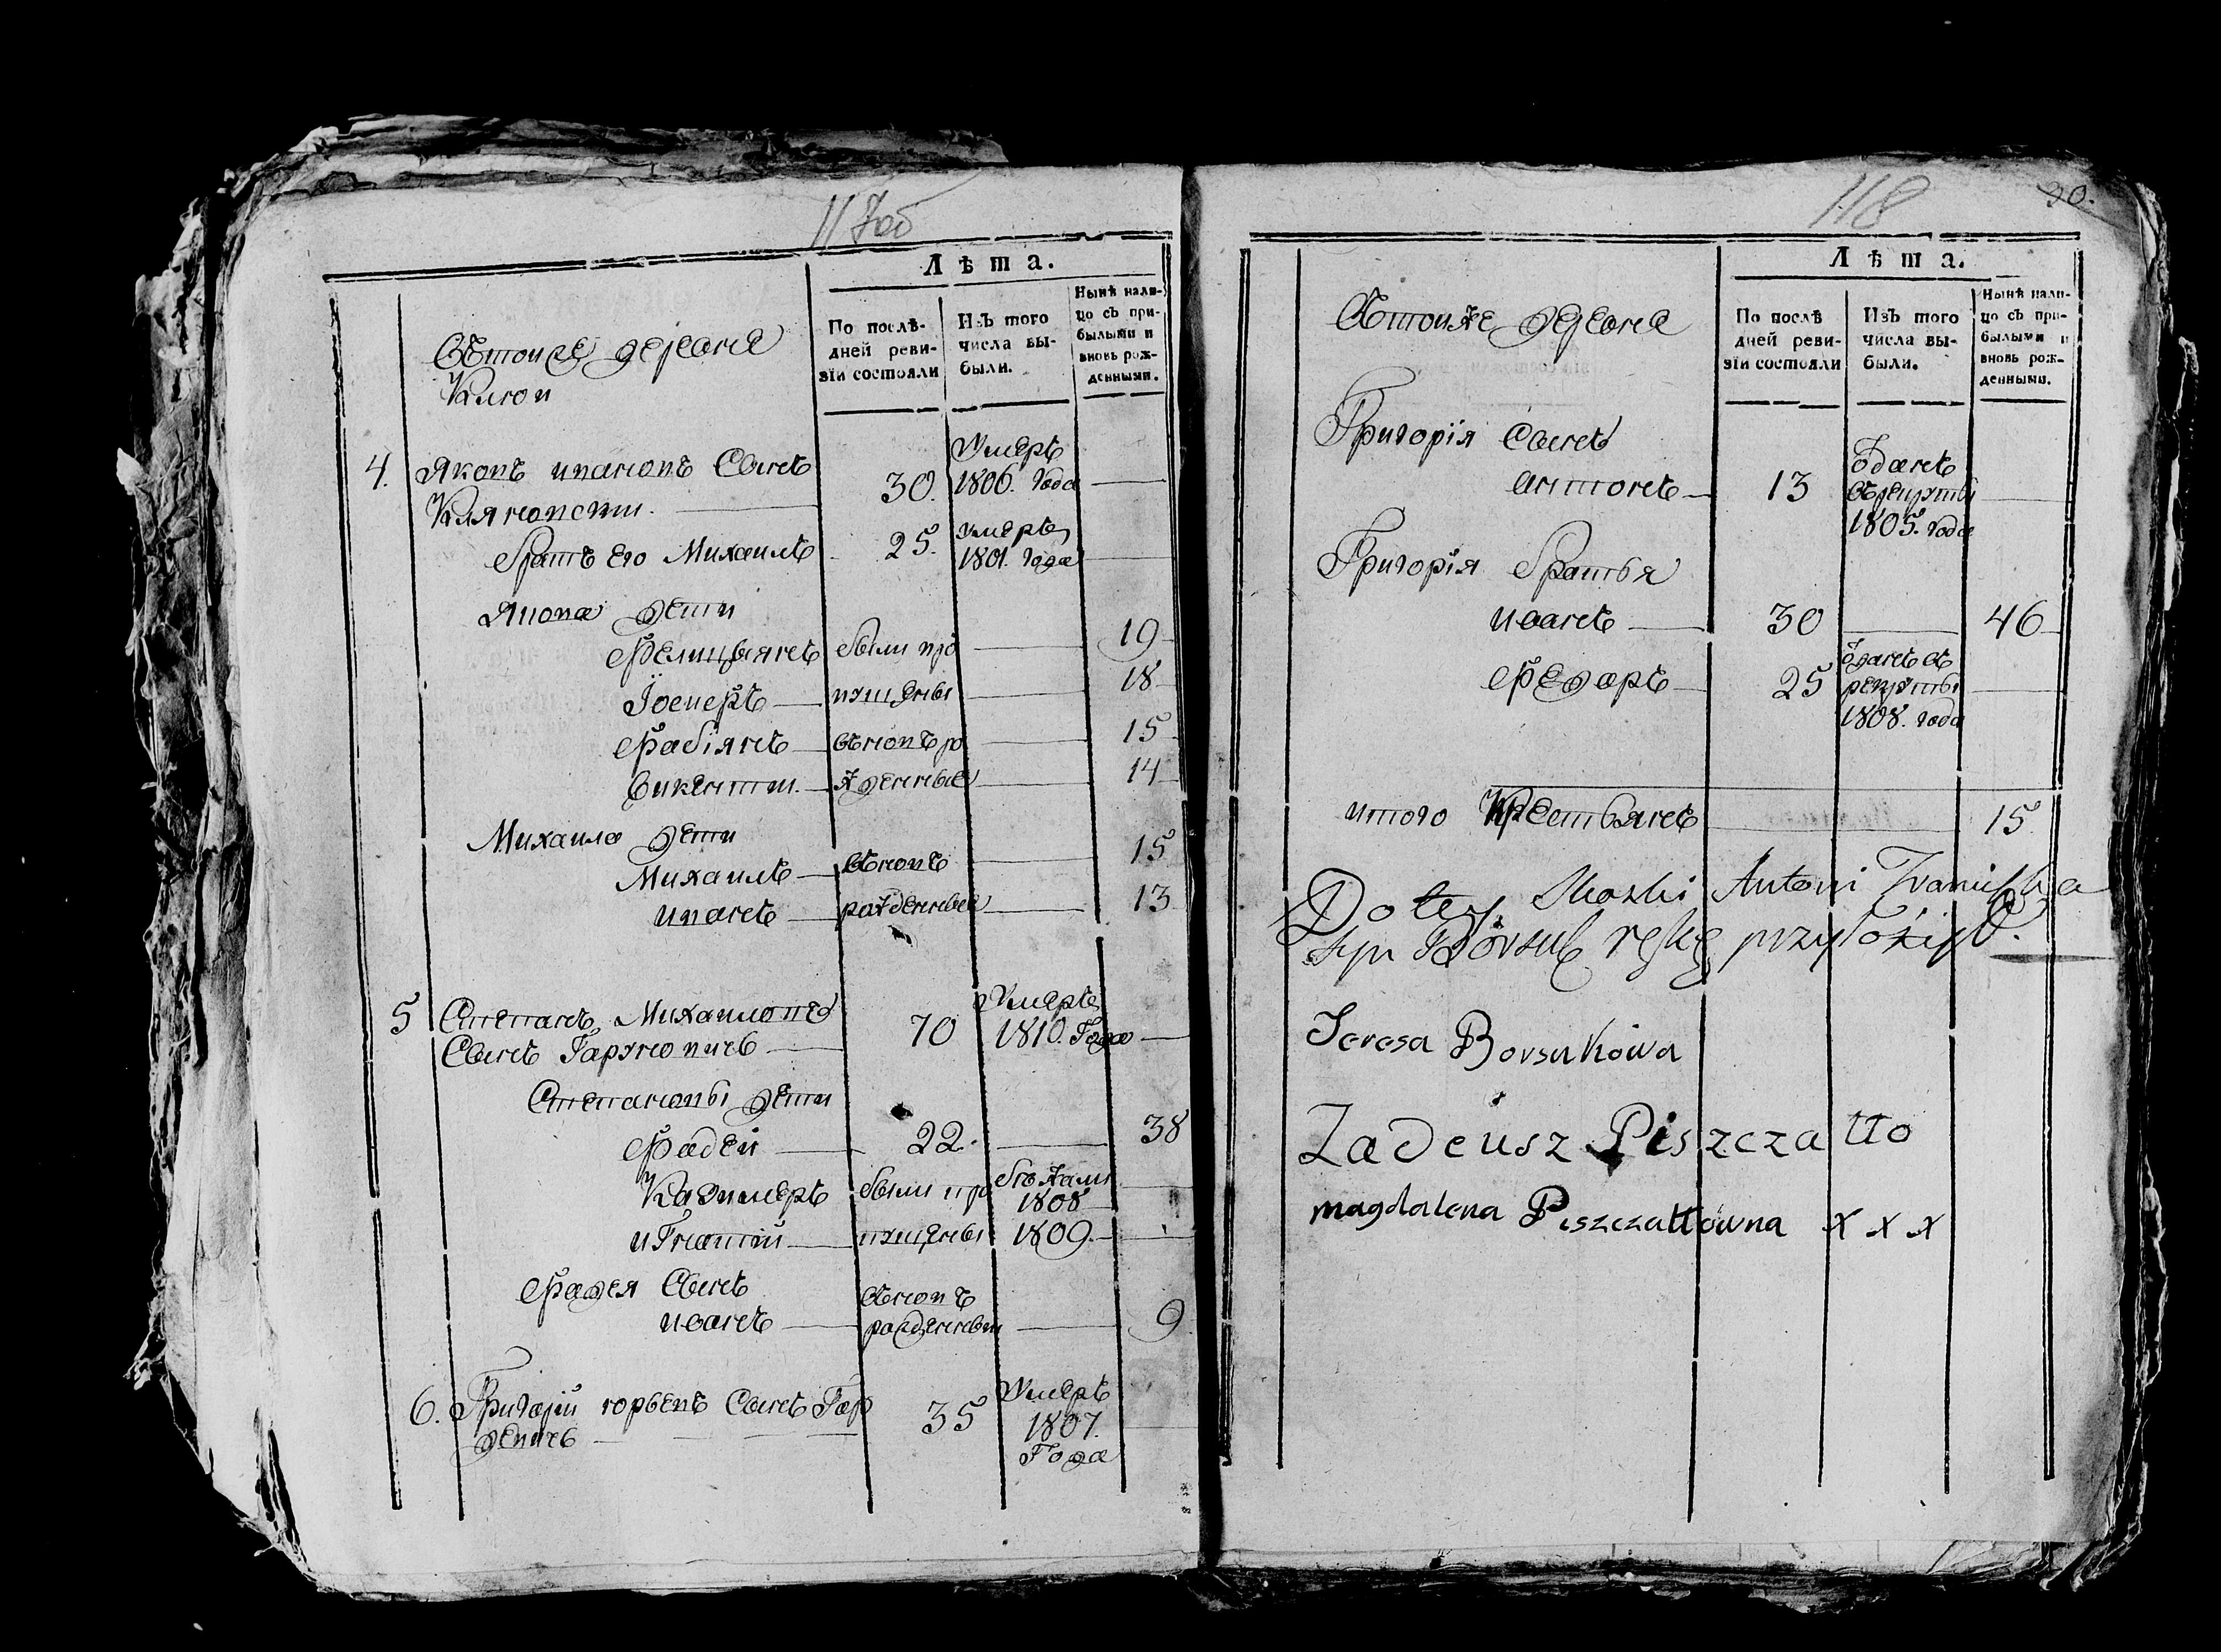 117об
Лѣта.
По послѣ-
дней реви-
зїи состояли
Изъ того
числа вы-
были.
Нынѣ нали-
цо съ при-
былыми и
вновь рож-
денными.
Въ той же деревне
4. Яковъ Ивановъ Сынъ
30. Умеръ 1806. года
братъ Его Михаилъ 25. умеръ 1801. года
Якова дети
Фелицыянъ были про 19
Іосифъ пущены 18
Фабіянъ вновь ро 15
Викентии жденные 14
Михаила дети
Михаилъ вновь 15
Иванъ рожденные 13
5 Степанъ Михайловъ 70 Умеръ
Сынъ 1810. Года
Степановы дети
Фадей 22. 38
Казимеръ были про бежали 1808
Игнатий пущены 1809.
Фадея Сынъ вновь
Иванъ рожденныи 9
6. Григорій Сынъ 35 Умеръ
1807.
Года
118
90.
Лѣта.
По послѣ
дней реви-
зїи состояли
Изъ того
числа вы-
были.
Нынѣ нали-
цо съ при-
былыми и
вновь рож-
денными.
Въ той же деревне
Григорія Сынъ
Антонъ 13 отданъ
въ рекруты
1805. года
Григорія братья
Иванъ 30 46
Федоръ 25 отданъ въ
рекруты
1808. года
итого Крестьянъ 15.
Do tey Skazki Antoni
syn Borsuk rękę przyłożył.
Teresa Borsukowa
Tadeusz Piszczatto
magdalena Piszczattowna x x x